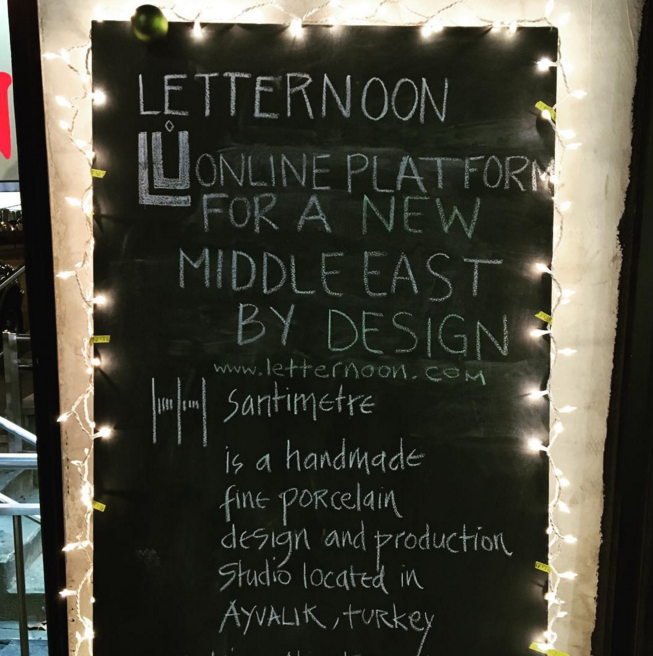 LETTERNOON
ONLINE PLATFORM
FOR A NEW
MIDDLE EAST
BY DESIGN
www.letternoon.com
santimetre
is a handmade
fine porcelain
design and production
Studio located in
AYVALIK, turkey